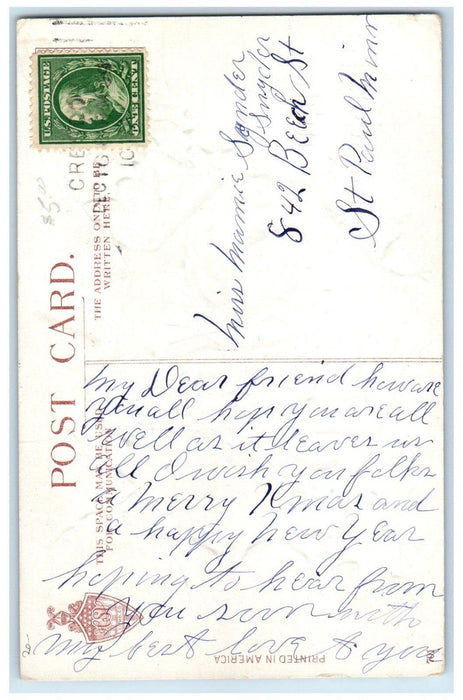 U.S. POSTAGE
ONE CENT
$5.00
CRE
DEC 16
10
POST CARD.
THE ADDRESS ONLY TO BE
WRITTEN HERE.
THIS SPACE MAY BE USED
FOR COMMUNICATION
Miss Mamie Sander
Snyder
842 Beech St
St Paul Minn
My Dear friend how are
you all hope you are all
well as it leaves us
all I wish you folks
a Merry Xmas and
a happy New Year
hoping to hear from
you soon with
my best love to you
20-
PRINTED IN AMERICA